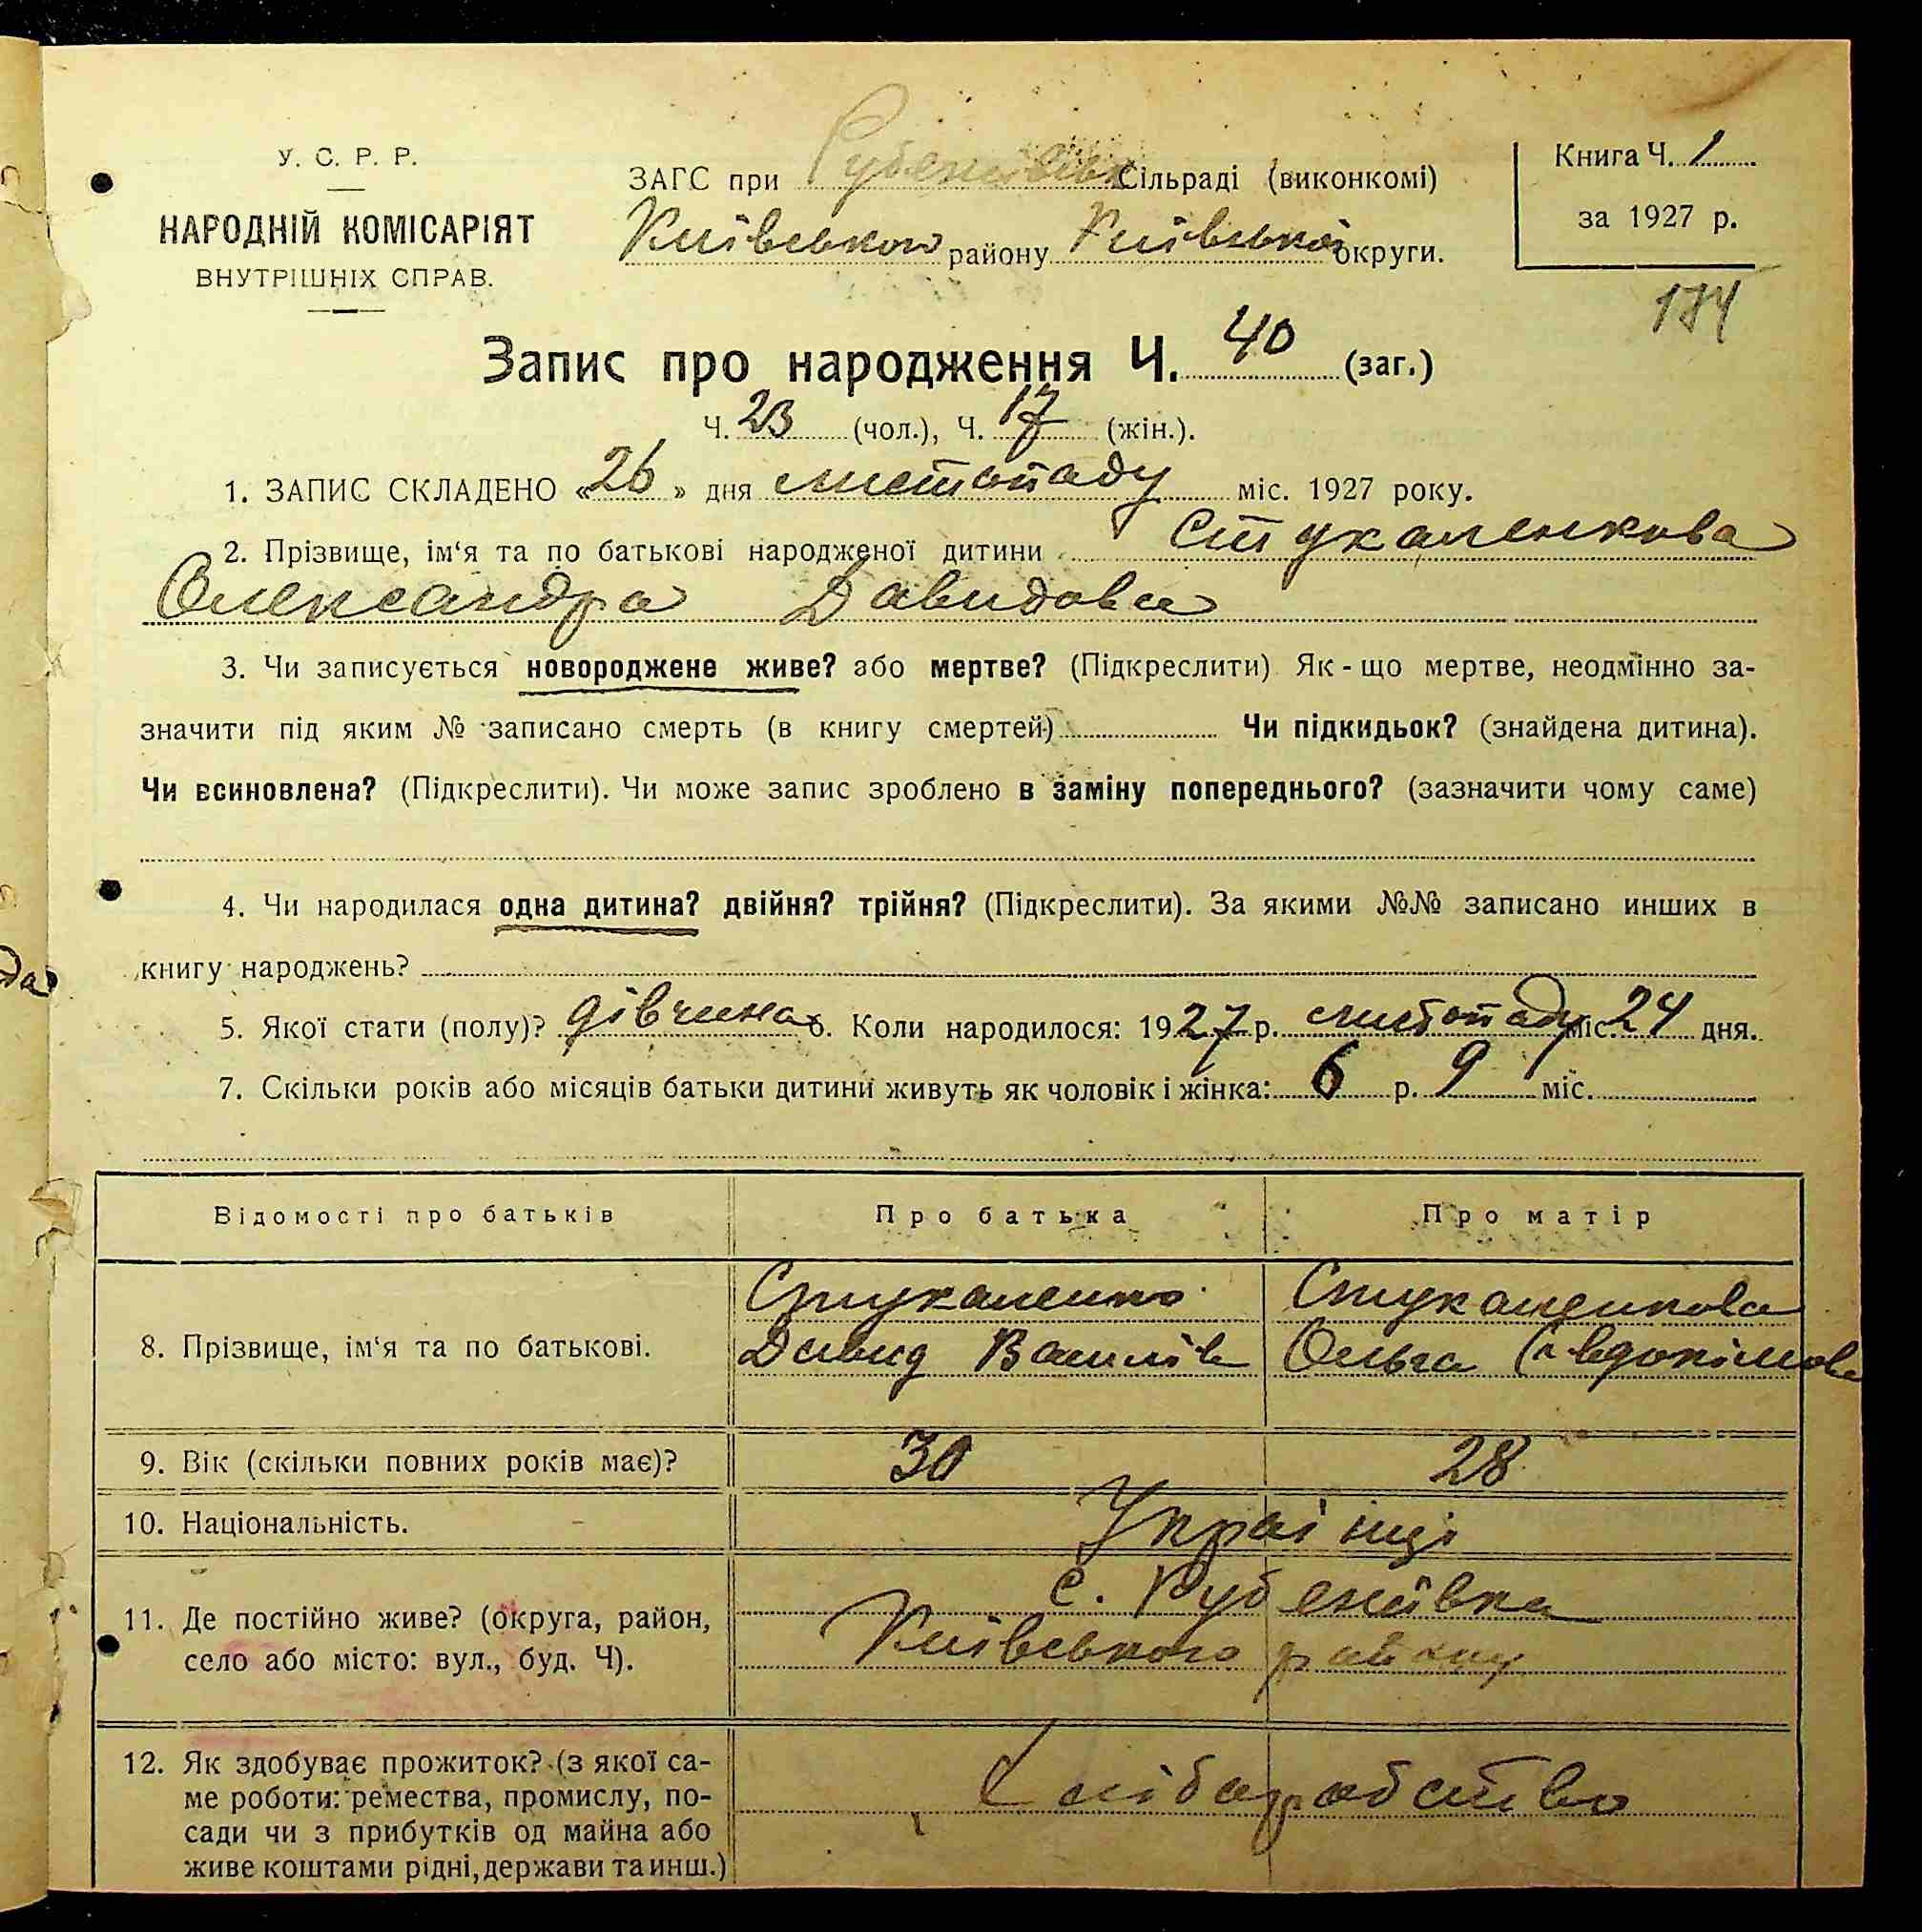 У. С. Р. Р.
НАРОДНІЙ КОМІСАРІЯТ
ВНУТРІШНІХ СПРАВ.
ЗАГС при Рубежівській Сільраді (виконкомі)
Київського району Київської округи.
Книга Ч. 1
за 1927 р.
174
Запис про народження Ч. 40 (заг.)
Ч. 23 (чол.), Ч. 17 (жін.).
1. ЗАПИС СКЛАДЕНО «26» дня листопаду міс. 1927 року.
2. Прізвище, ім‘я та по батькові народженої дитини Стукаленкова
Олександра Давидова
3. Чи записується новороджене живе? або мертве? (Підкреслити) Як-що мертве, неодмінно за-
значити під яким № записано смерть (в книгу смертей) Чи підкидьок? (знайдена дитина).
Чи всиновлена? (Підкреслити). Чи може запис зроблено в заміну попереднього? (зазначити чому саме)
4. Чи народилася одна дитина? двійня? трійня? (Підкреслити). За якими №№ записано инших в
книгу народжень?
5. Якої стати (полу)? дівчина 6. Коли народилося: 1927 р. листопаду міс. 24 дня.
7. Скільки років або місяців батьки дитини живуть як чоловік і жінка: 6 р. 9 міс.
Відомості про батьків Про батька Про матір
8. Прізвище, ім‘я та по батькові.
Стукаленко
Давид Василів
Стукаленкова
Ольга Євдокімова
9. Вік (скільки повних років має)? 30 28
10. Національність. Українці
11. Де постійно живе? (округа, район,
село або місто: вул., буд. Ч).
с. Рубежівка
Київського району
12. Як здобуває прожиток? (з якої са-
ме роботи: ремества, промислу, по-
сади чи з прибутків од майна або
живе коштами рідні, держави та инш.)
Хліборобство